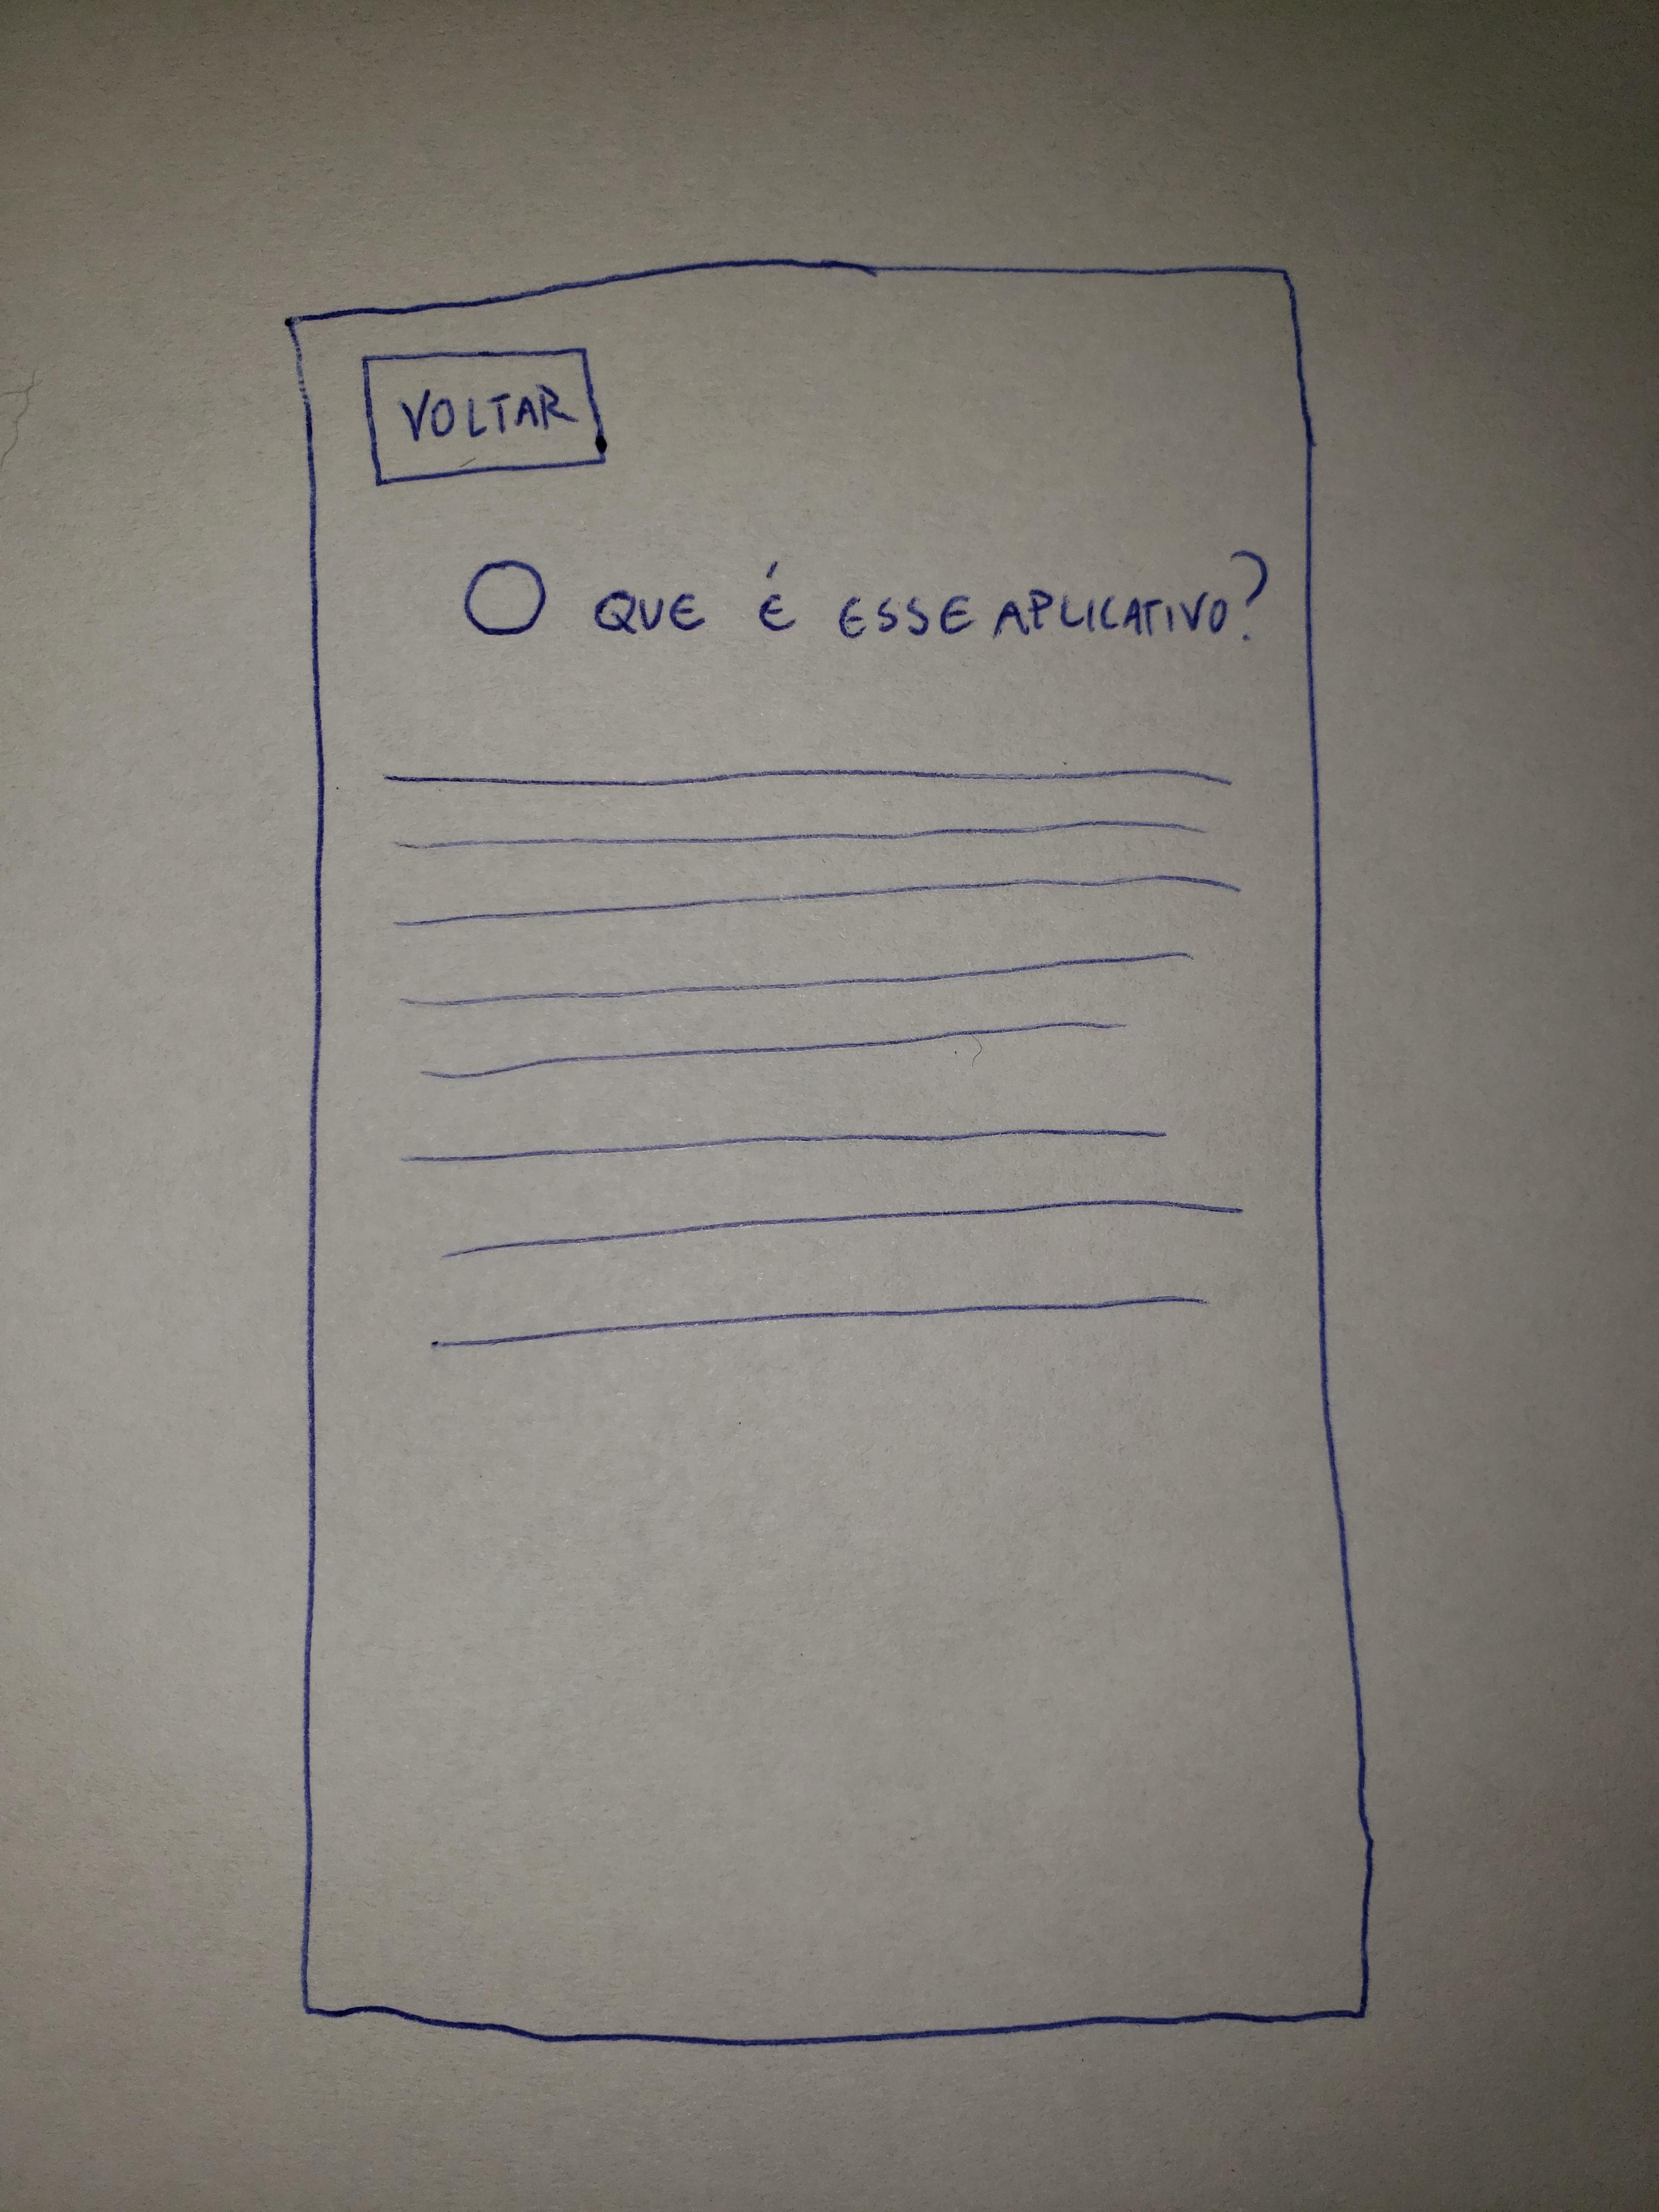 VOLTAR
O QUE É ESSE APLICATIVO?